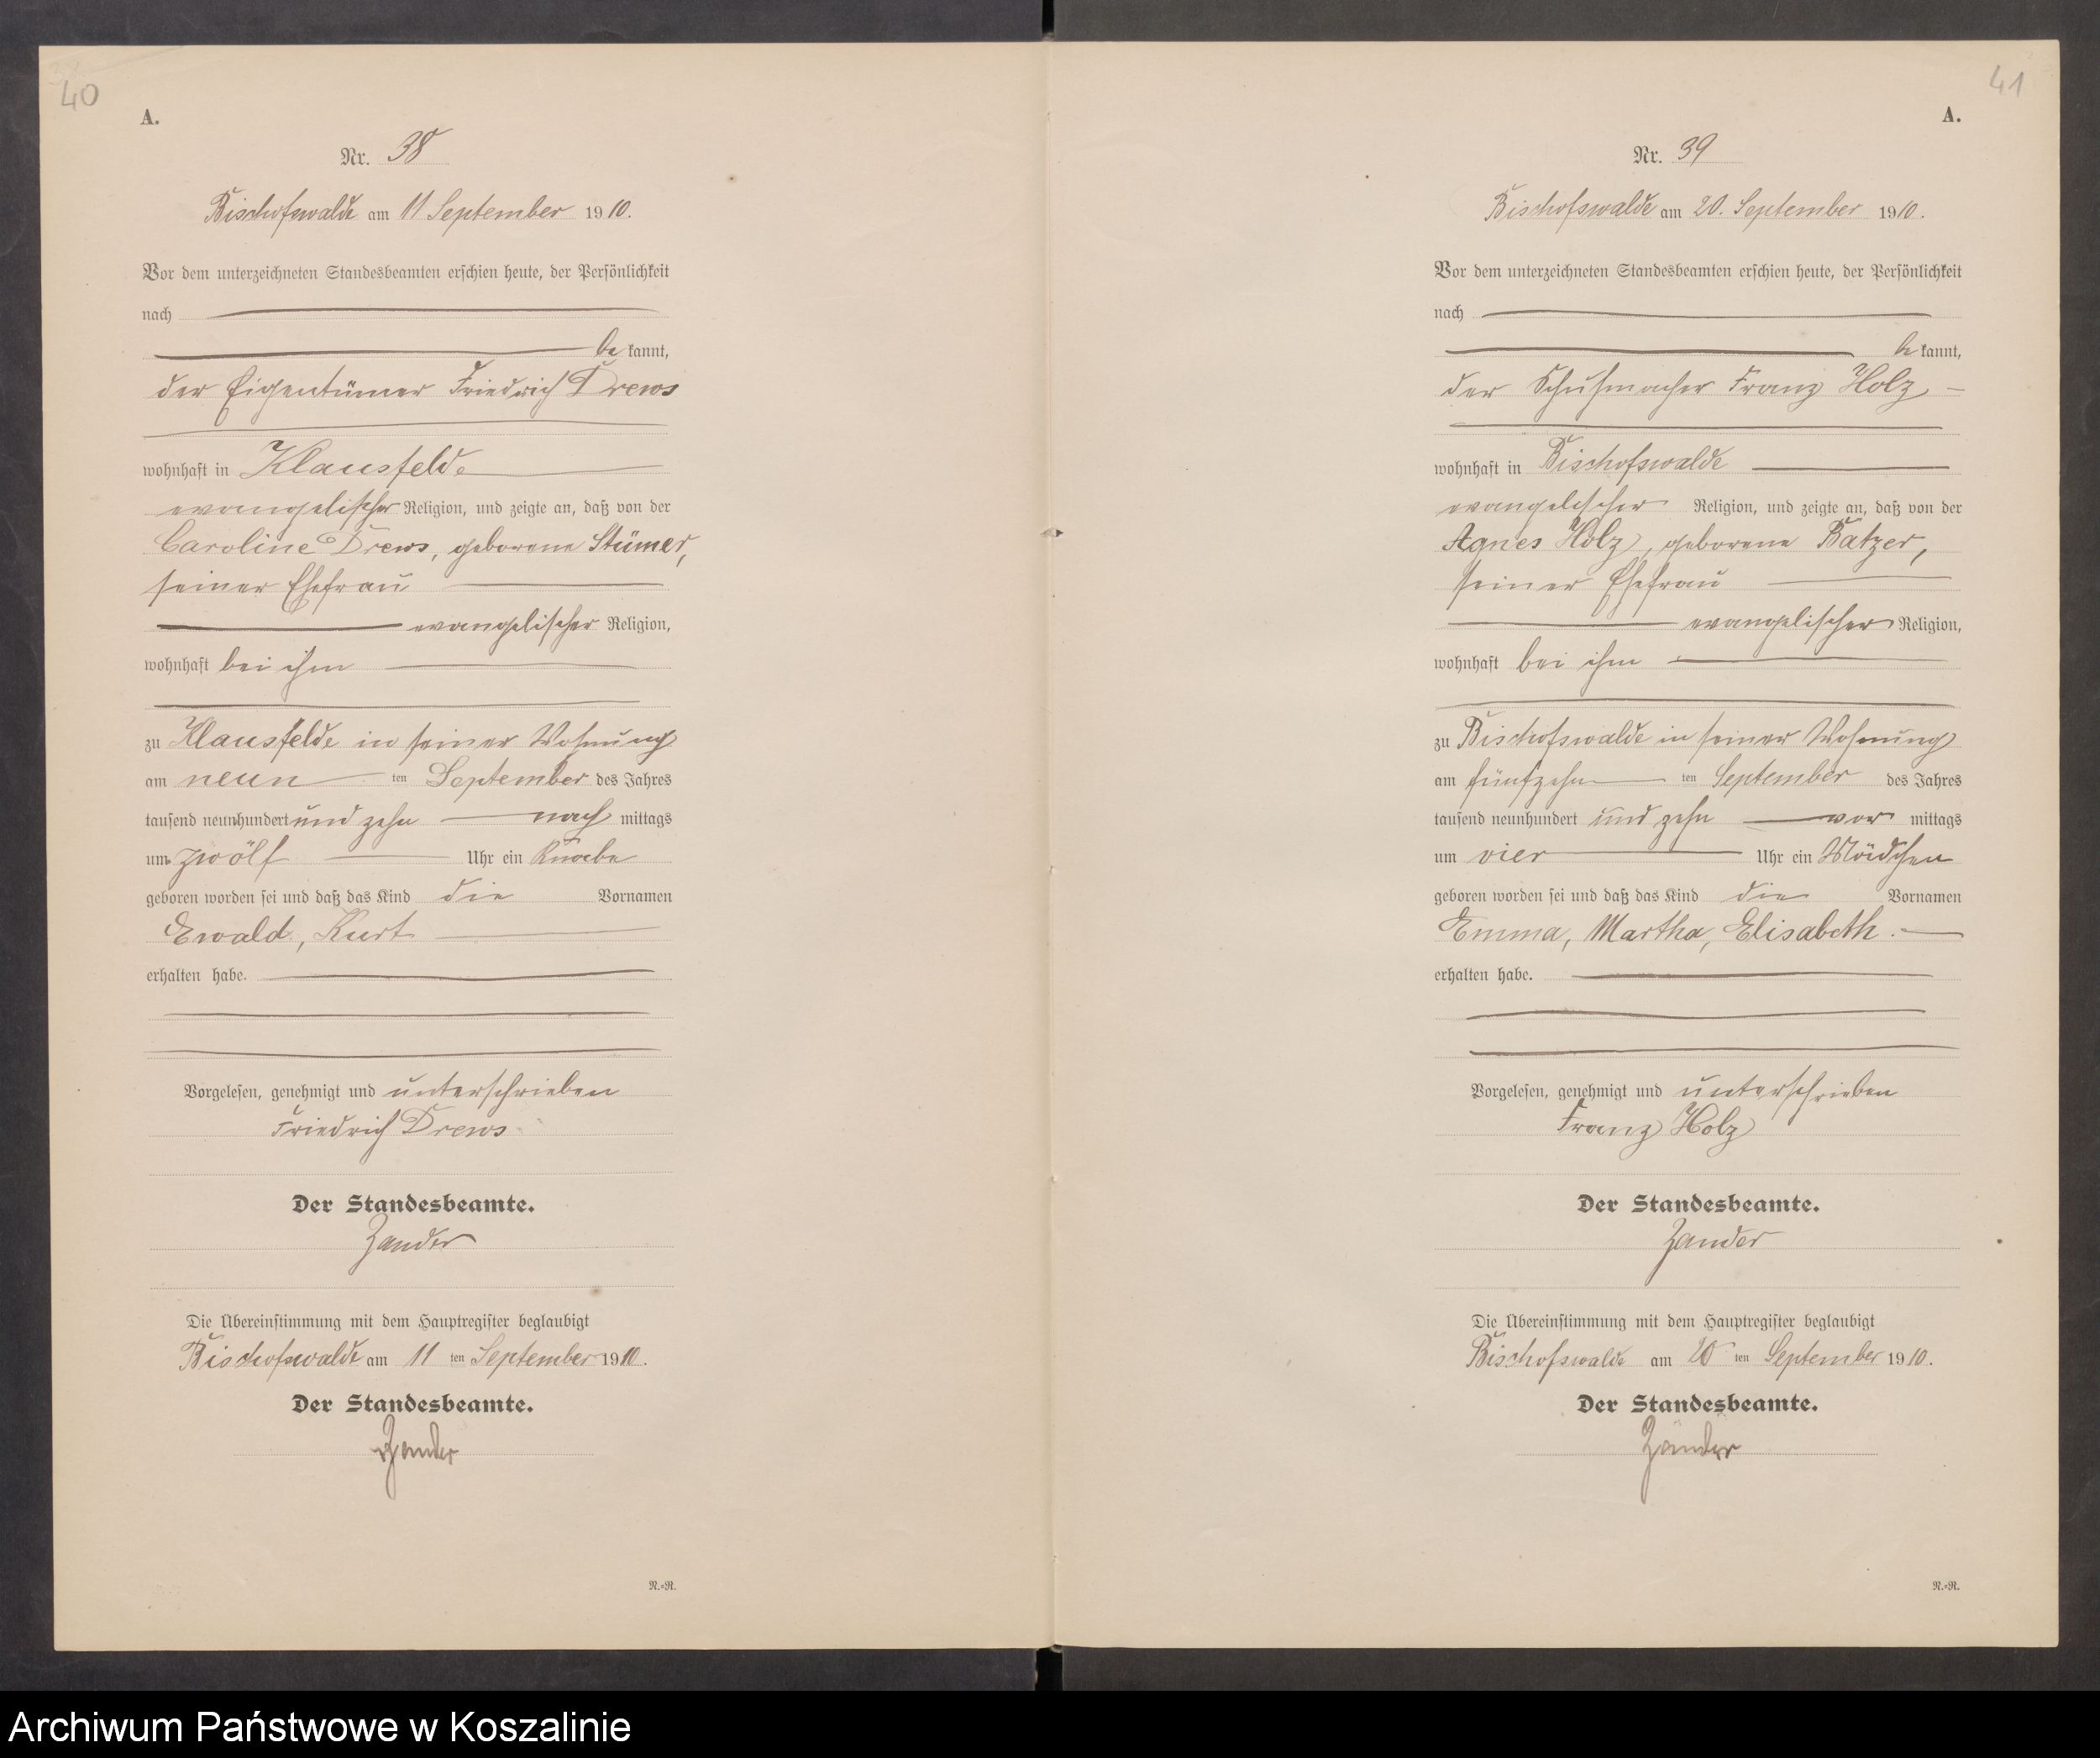 40
A.
Nr. 38
Bischofswalde am 11 September 1910.
Vor dem unterzeichneten Standesbeamten erschien heute, der Persönlichkeit
nach
be kannt,
der Eigentümer Friedrich Drews
wohnhaft in Klausfelde
evangelischer Religion, und zeigte an, daß von der
Caroline Drews, geborene Stümer,
seiner Ehefrau
evangelischer Religion,
wohnhaft bei ihm
zu Klausfelde in seiner Wohnung
am neun ten September des Jahres
tausend neunhundert und zehn nach mittags
um zwölf Uhr ein Knabe
geboren worden sei und daß das Kind die Vornamen
Ewald, Kurt
erhalten habe.
Vorgelesen, genehmigt und unterschrieben
Friedrich Drews
Der Standesbeamte.
Zander
Die Übereinstimmung mit dem Hauptregister beglaubigt
Bischofswalde am 11 ten September 1910.
Der Standesbeamte.
Zander
N.=N.
41
A.
Nr. 39
Bischofswalde am 20. September 1910.
Vor dem unterzeichneten Standesbeamten erschien heute, der Persönlichkeit
nach
be kannt,
der Schuhmacher Franz Holz
wohnhaft in Bischofswalde
evangelischer Religion, und zeigte an, daß von der
Agnes Holz, geborene Batzer,
seiner Ehefrau
evangelischer Religion,
wohnhaft bei ihm
zu Bischofswalde in seiner Wohnung
am fünfzehn ten September des Jahres
tausend neunhundert und zehn vor mittags
um vier Uhr ein Mädchen
geboren worden sei und daß das Kind die Vornamen
Emma, Martha, Elisabeth.
erhalten habe.
Vorgelesen, genehmigt und unterschrieben
Franz Holz
Der Standesbeamte.
Zander
Die Übereinstimmung mit dem Hauptregister beglaubigt
Bischofswalde am 20 ten September 1910.
Der Standesbeamte.
Zander
N.=N.
Archiwum Państwowe w Koszalinie